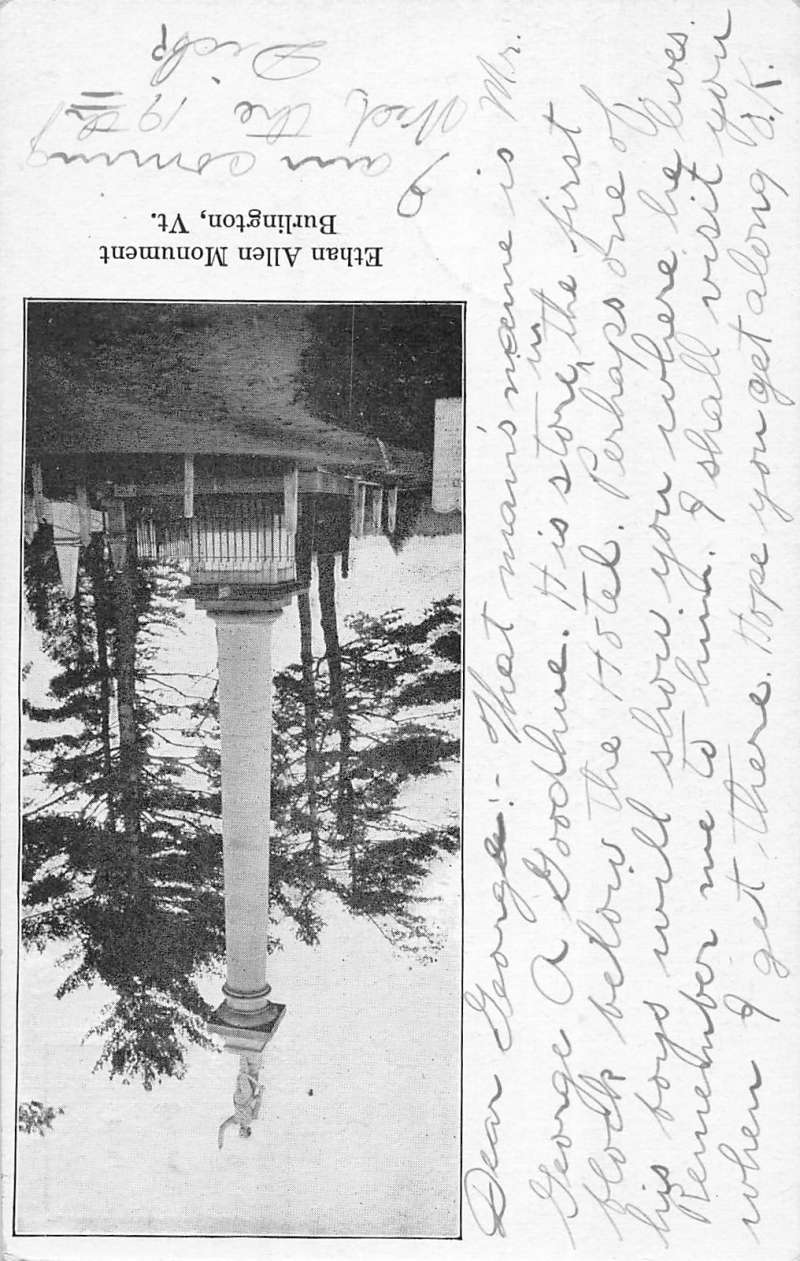 Ethan Allen Monument
Burlington, Vt.
I am coming
Wed, the 19th
Dick
Dear George:- That man's name is Mr.
George A Goodhue. H is store, in the first
block below the Hotel. Perhaps one of
his boys will show you where he lives.
Remember me to him. I shall visit you
when I get there. Hope you get along O.K.